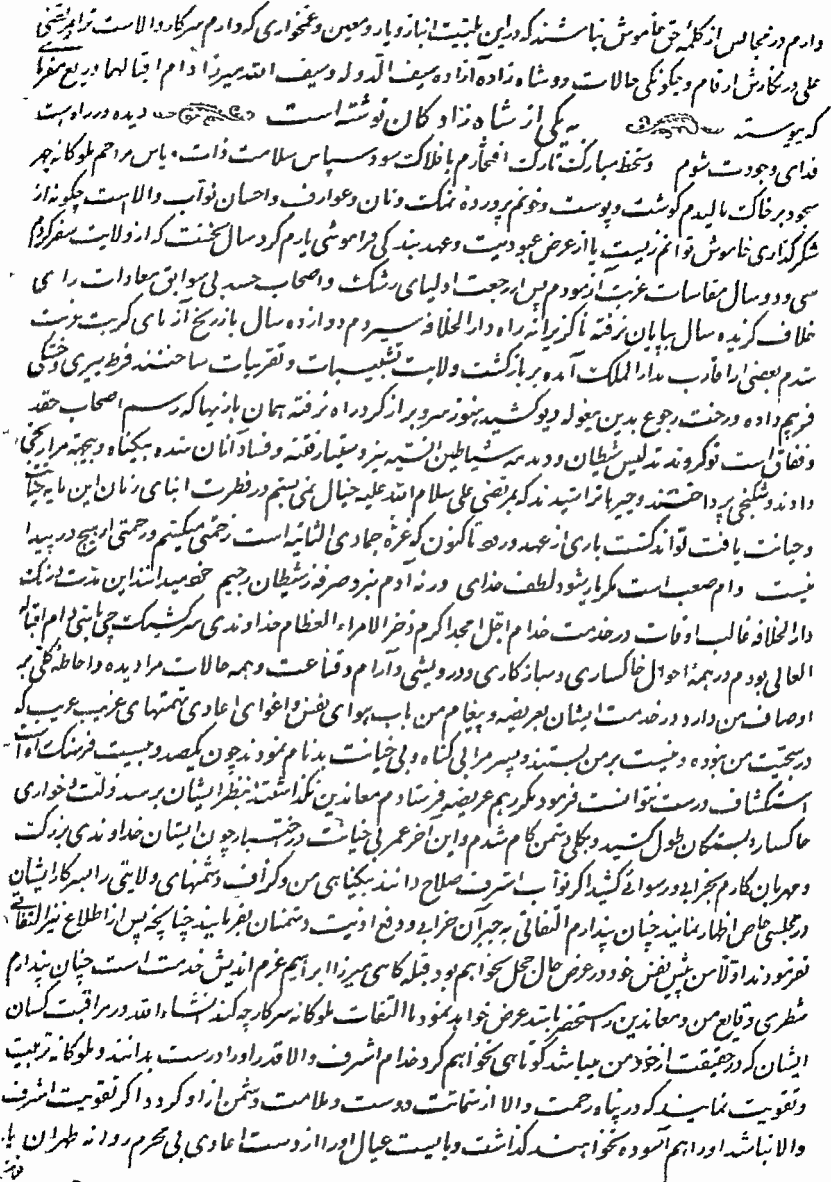 دارم در مجالس از کلمه حق خاموش نباشند که در این بلیت انباز و یار و معین و غمخواری که دارم سرکار والاست
علی در نگارش ارقام و چگونگی حالات دو شاه زاده آزاده سیف الدوله و سیف الله میرزا دام اقبالهما دریغ مفرما
که پیوسته دیده در راه است به یکی از شاه زاد کان نوشته است
فدای وجودت شوم دستخط مبارکت تارک افتخارم بافلاک سود سپاس سلامت ذات و پاس مراحم ملوکانه چهر
سجود بر خاک مالیدم گوشت و پوست و خونم پرورده نمک و نان و عوارف و احسان نواب والاست چگونه از
شکر گذاری خاموش توانم زیست یا از عرض عبودیت و عهد بندگی فراموشی یارم کرد سال نخست که از ولایت سفر کردم
سی و دو سال مقاسات غربت آزمودم پس از رجعت اولیای رشک و اصحاب حسد بی سوابق معادات رای
خلاف گزیده سال بپایان نرفته ناگزیرانه راه دار الخلافه سپردم دوازده سال باز رنج آزمای کربت غربت
شدم بعضی از اقارب بدار الملک آمده بر بازگشت ولایت تشبیبات و تقریبات ساختند فرط پیری و خستگی
فریبم داده درخت رجوع بدین بیغوله دیو کشید هنوز سر و بر از گرد راه نرفته همان بازیها که رسم اصحاب حقد
و نفاق است نو کردند تدلیس شیطان و دمدمه شیاطین الانسیه نیز دستیار فتنه و فساد آنان شده بیگناه و بیجهة مرا رنجی
دادند و شکنجی پرداختند و چیزها تراشیدند که بمرتضی علی سلام الله علیه خیال نمی بستم در فطرت ابنای زمان این مایه خیانت
و جنایت یافت تواند گشت باری از عهد ورود تاکنون که غره جمادی الثانیه است زخمی میکشم و رحمتی از هیچ در پیدا
نیست دام صعب است مگر یار شود لطف خدای ورنه آدم نبرد صرفه ز شیطان رجیم خود میدانند این مدت درنگ
دار الخلافه غالب اوقات در خدمت خدام اجل امجد اکرم ذخر الامراء العظام خداوندی سرکشیکچی باشی دام اقباله
العالی بودم در همه احوال خاکساری و سازگاری و درویشی و آرام و قناعت و همه حالات مرا دیده و احاطه کلی بر
اوصاف من دارد در خدمت ایشان بعریضه و پیغام من باب هوای نفس و اغوای اعادی تهمتهای غریب عجیب که
در سجیت من نبوده و نیست بر من بستند و پسر مرا بی گناه و بی خیانت بدنام نمودند چون یکصد و بیست فرسنگ راه است
استکشاف درست نتوانست فرمود مکرر هم عریضه فرستادم معاندین نگذاشتند بنظر ایشان برسد ذلت و خواری
خاکسار و بستگان طول کشید و بکلی دشمن کام شدم و این آخر عمر بی خیانت چون ایشان خداوندی بزرگ
و مهربان کارم بخرابی و رسوائی کشید اگر نواب اشرف صلاح دانند بیگناهی من و گزاف دشمنهای ولایتی را بسرکار ایشان
در مجلسی خاص اظهار نمایند چنان پندارم التفاتی به جبر آن خرابی و دفع اذیت دشمنان بفرمایند چنانچه پس از اطلاع نیز التفاتی
نفرمودند اولا من پیش نفس خود در عرض حال خجل نخواهم بود قبله گاهی میرزا ابراهیم عزم اندیش خدمت است چنان پندارم
شطری وقایع من و معاندین را مستحضر باشد عرض خواهد نمود تا التفات ملوکانه سرکار چه کند انشاء الله در مراقبت کسان
ایشان که در حقیقت از خود من میباشد کوتاهی نخواهم کرد خدام اشرف والا قدر او را درست بدانند و ملوکانه تربیت
و تقویت نمایند که در پناه رحمت والا از شماتت دوست و ملامت دشمن آزاد گردد اگر تقویت اشرف
والا نباشد او را هم آسوده نخواهند گذاشت و بایست عیال او را از دست اعادی بی محرم روانه طهران